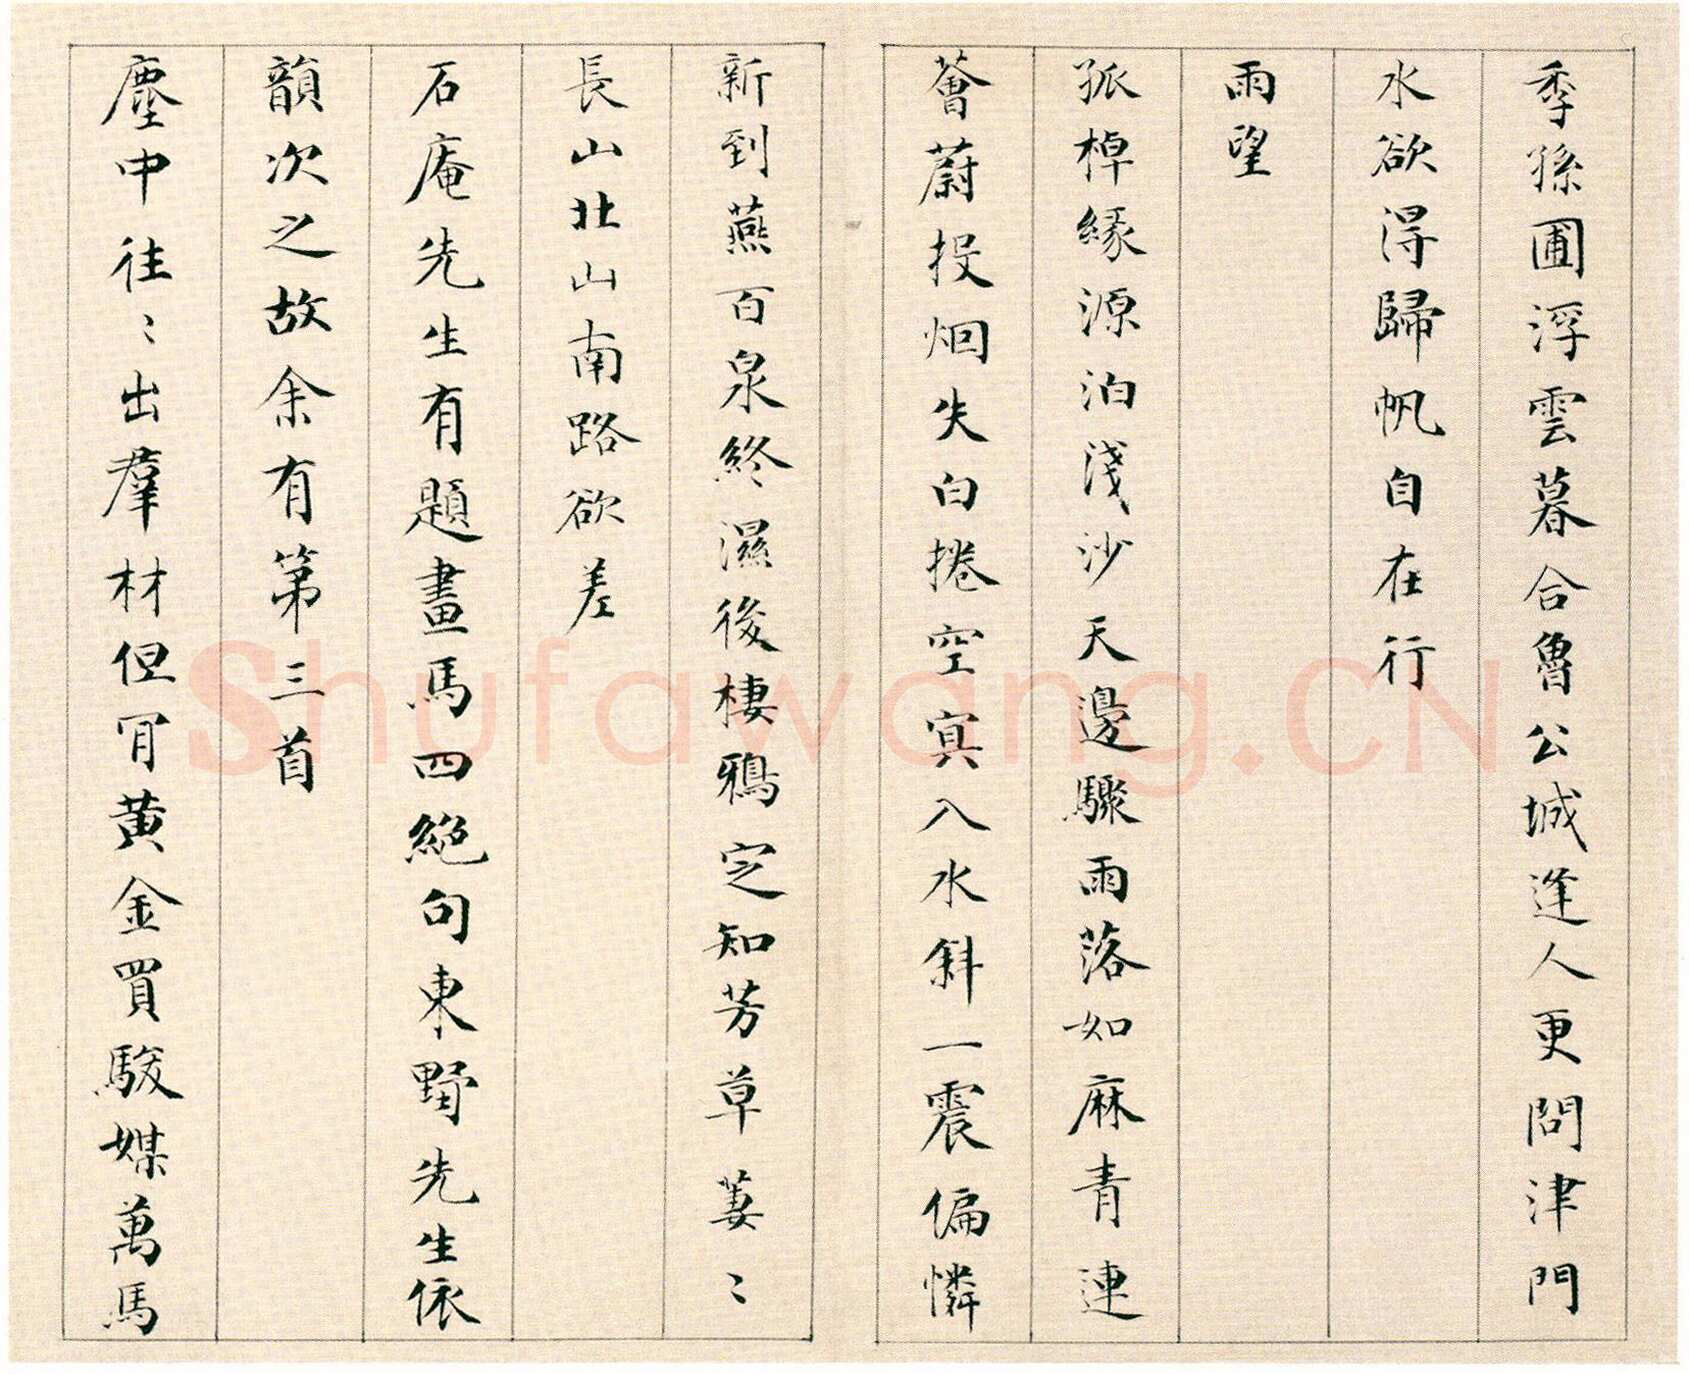 季孫圃浮雲暮合魯公城逢人更問津門
水欲得歸帆自在行
雨望
孤棹緣源泊淺沙天邊驟雨落如麻青連
薈蔚投烟失白捲空冥入水斜一震偏憐
新到燕百泉終濕後棲鴉定知芳草萋〻
長山北山南路欲差
石庵先生有題畫馬四絕句東野先生依
韻次之故余有第三首
塵中往〻出羣材但買黃金買駿媒萬馬
Shufawang.CN